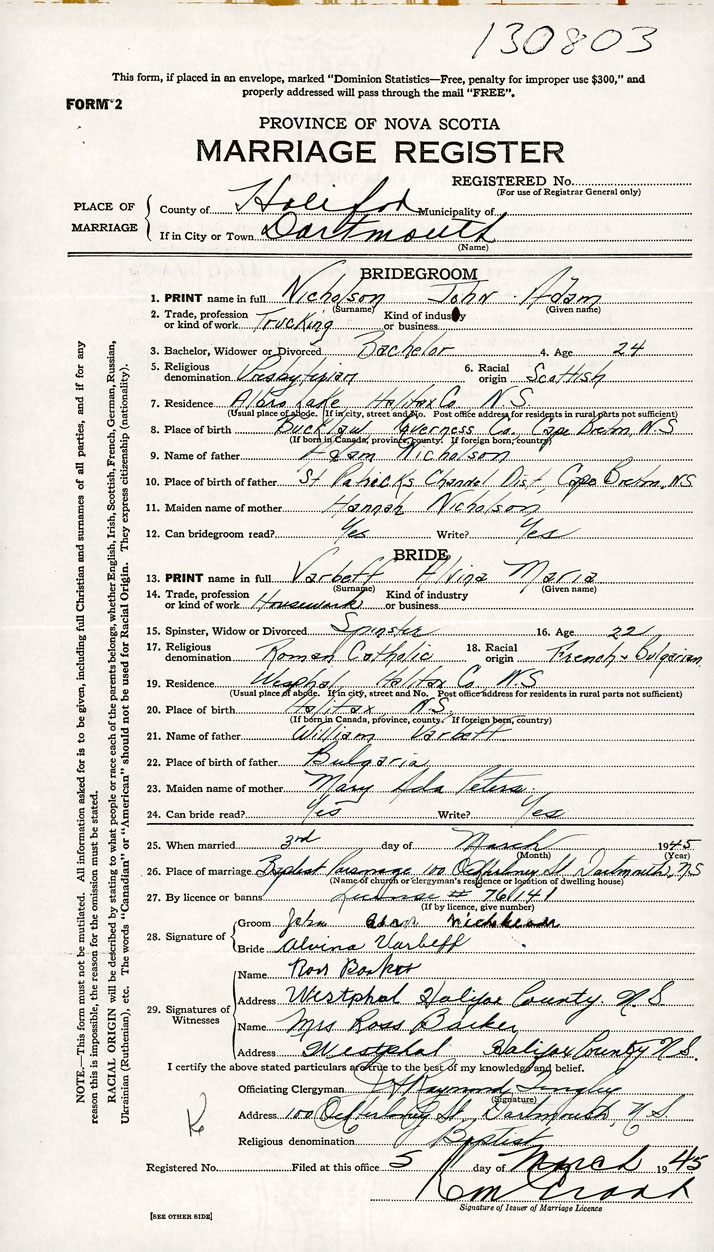 130803
This form, if placed in an envelope, marked "Dominion Statistics—Free, penalty for improper use $300," and
properly addressed will pass through the mail "FREE".
FORM 2
PROVINCE OF NOVA SCOTIA
MARRIAGE REGISTER
REGISTERED No.
(For use of Registrar General only)
PLACE OF MARRIAGE
County of Halifax Municipality of
If in City or Town Dartmouth
(Name)
BRIDEGROOM
1. PRINT name in full Nicholson John Adam
(Surname) (Given name)
2. Trade, profession or kind of work Trucking Kind of industry or business
3. Bachelor, Widower or Divorced Bachelor 4. Age 24
5. Religious denomination Presbyterian 6. Racial origin Scottish
7. Residence Albro Lake Halifax Co. N.S.
(Usual place of abode. If in city, street and No. Post office address for residents in rural parts not sufficient)
8. Place of birth Inverness Co. Cape Breton, N.S.
(If born in Canada, province, county. If foreign born, country)
9. Name of father Adam Nicholson
10. Place of birth of father St Patricks Channel Dist, Cape Breton, N.S.
11. Maiden name of mother Hannah Nicholson
12. Can bridegroom read? Yes Write? Yes
BRIDE
13. PRINT name in full Varbeff Alvina Maria
(Surname) (Given name)
14. Trade, profession or kind of work Housework Kind of industry or business
15. Spinster, Widow or Divorced Spinster 16. Age 22
17. Religious denomination Roman Catholic 18. Racial origin French & Bulgarian
19. Residence Wesphal Halifax Co. N.S.
(Usual place of abode. If in city, street and No. Post office address for residents in rural parts not sufficient)
20. Place of birth Halifax N.S.
(If born in Canada, province, county. If foreign born, country)
21. Name of father William Varbeff
22. Place of birth of father Bulgaria
23. Maiden name of mother Mary Ada Peters
24. Can bride read? Yes Write? Yes
25. When married 3rd day of March 1945
(Month) (Year)
26. Place of marriage Baptist Parsonage 100 Ochterloney St Dartmouth, N.S
(Name of church or clergyman's residence or location of dwelling house)
27. By licence or banns License # 76141
(If by licence, give number)
28. Signature of
Groom John Adam Nicholson
Bride Alvina Varbeff
29. Signatures of Witnesses
Name Ross Barker
Address Westphal Halifax County. N.S.
Name Mrs Ross Barker
Address Westphal Halifax County N.S.
I certify the above stated particulars are true to the best of my knowledge and belief.
Officiating Clergyman Raymond
(Signature)
Address 100 Ochterloney St., Dartmouth, N.S.
Religious denomination Baptist
Registered No. Filed at this office 5 day of March 1945
Signature of Issuer of Marriage Licence
[SEE OTHER SIDE]
NOTE.—This form must not be mutilated. All information asked for is to be given, including full Christian and surnames of all parties, and if for any
reason this is impossible, the reason for the omission must be stated.
RACIAL ORIGIN will be described by stating to what people or race each of the parents belongs, whether English, Irish, Scottish, French, German, Russian,
Ukrainian (Ruthenian), etc. The words "Canadian" or "American" should not be used for Racial Origin. They express citizenship (nationality).